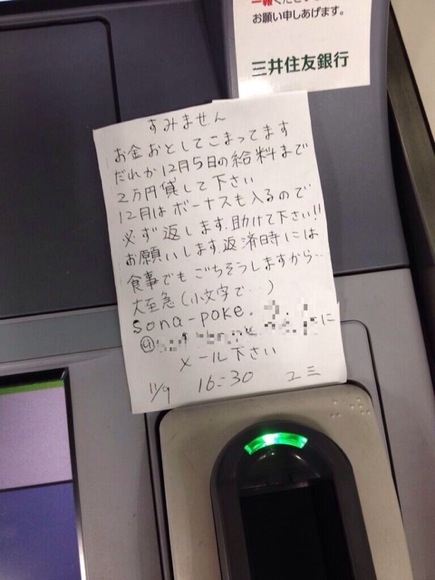 お願い申しあげます。
三井住友銀行
すみません
お金おとしてこまってます
だれか12月5日の給料まで
2万円貸して下さい
12月はボーナスも入るので
必ず返します.助けて下さい!!
お願いします.返済時には
食事でもごちそうしますから…
大至急(小文字で…)
sona-poke.
に
メール下さい
11/9 16:30 ユミ